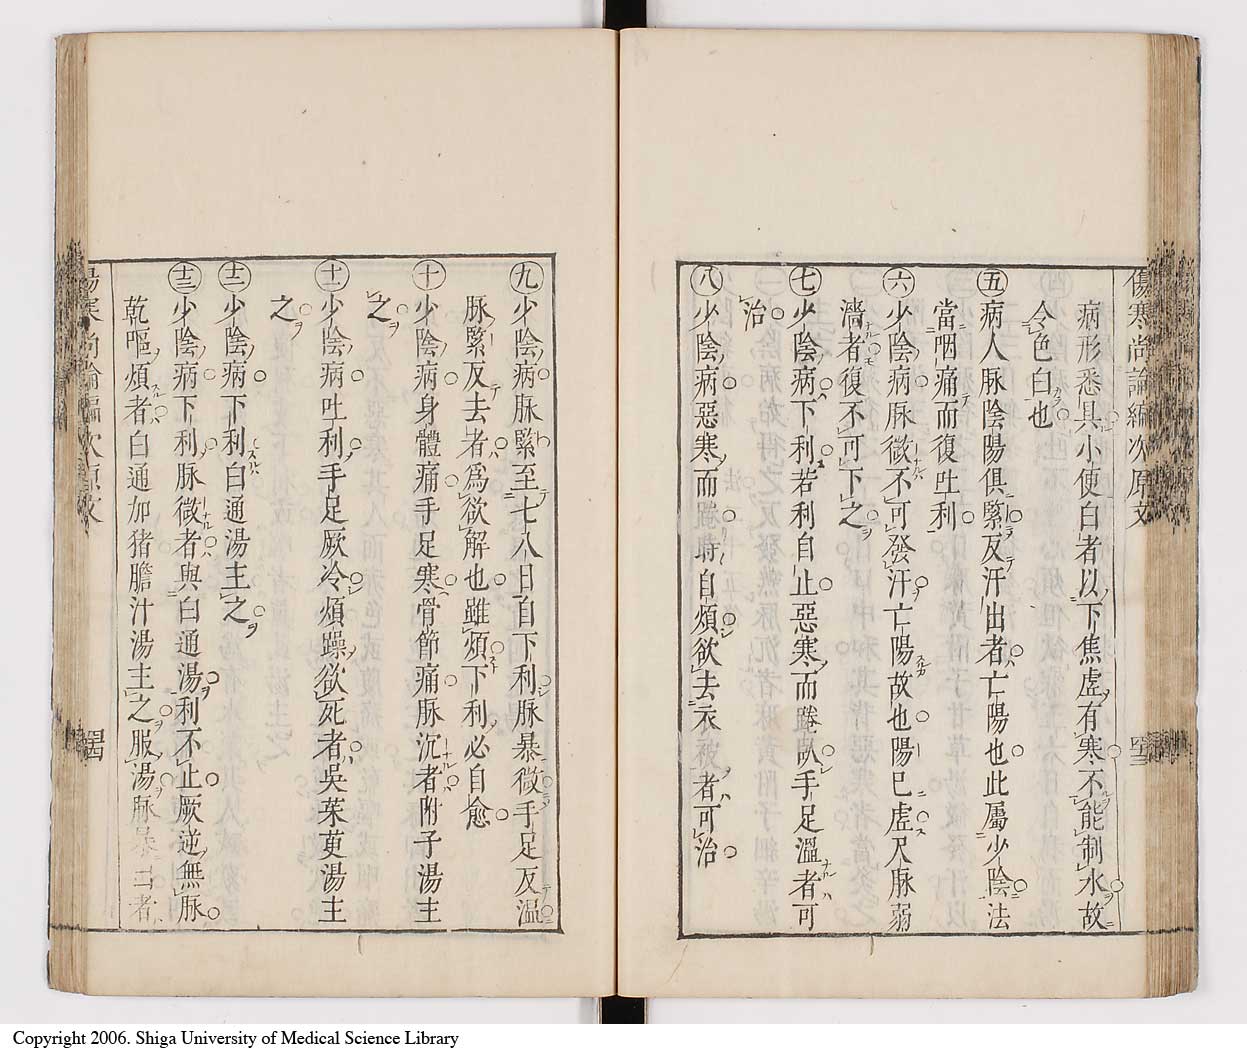 傷寒尚論編次原文
病形悉具小便白者以下焦虛有寒不能制水故
令色白也
五 病人脉陰陽俱緊反汗出者亡陽也此屬少陰法
當咽痛而復吐利
六 少陰病脉微不可發汗亡陽故也陽已虛尺脉弱
濇者復不可下之
七 少陰病下利若利自止惡寒而踡臥手足溫者可
治
八 少陰病惡寒而踡時自煩欲去衣被者可治
九 少陰病脉緊至七八日自下利脉暴微手足反溫
脉緊反去者爲欲解也雖煩下利必自愈
十 少陰病身體痛手足寒骨節痛脉沉者附子湯主
之
十一 少陰病吐利手足厥冷煩躁欲死者吳茱萸湯主
之
十二 少陰病下利白通湯主之
十三 少陰病下利脉微者與白通湯利不止厥逆無脉
乾嘔煩者白通加猪膽汁湯主之服湯脉暴出者
Copyright 2006. Shiga University of Medical Science Library